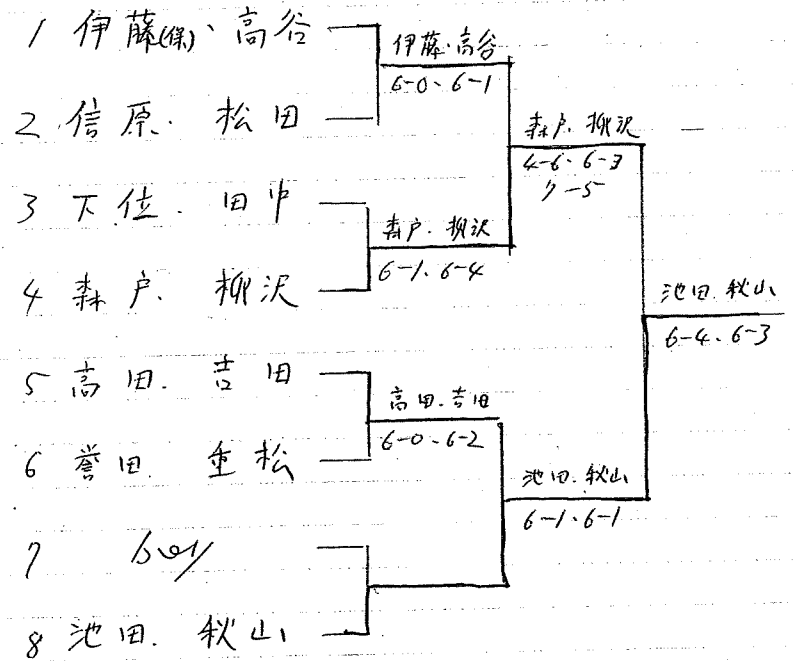 1 伊藤(保)、高谷
2 信原. 松田
3 下位. 田中
4 森戸. 柳沢
5 高田. 吉田
6 誉田. 重松
7 bye
8 池田. 秋山
伊藤.高谷
6-0、6-1
森戸. 柳沢
6-1、6-4
高田.吉田
6-0、6-2
森戸. 柳沢
4-6、6-3
7-5
池田. 秋山
6-1、6-1
池田. 秋山
6-4、6-3